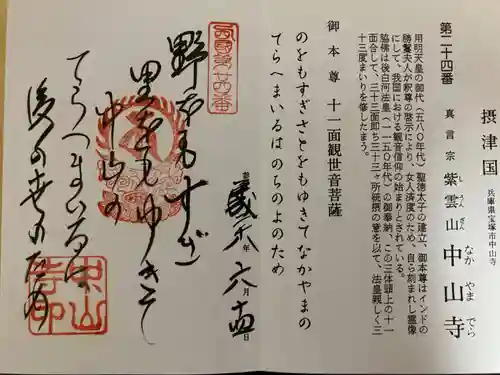 摂津国
兵庫県宝塚市中山寺
第二十四番
真言宗 紫雲山 中山寺
しうんざん なかやまでら
用明天皇の御代(五八〇年代)、聖徳太子の建立、御本尊はインドの
勝鬘夫人が釈尊の啓示により、女人済度のため、自ら刻まれし霊像
にして、我国における観音信仰の始まりとされている。
脇佛は後白河法皇(一一五〇年代)の御奉納、この三体頭上の十一
面合して、三十三面即ち三十三ヶ所統摂の意を以て、法皇親しく三
十三度まいりを修したまう。
御本尊 十一面観世音菩薩
のをもすぎさとをもゆきてなかやまの
てらへまいるはのちのよのため
年 六月 日
西國第廿四番
野をもすぎ
里をもゆきて
中山の
てらへまいるは
後の世のため
中山寺印